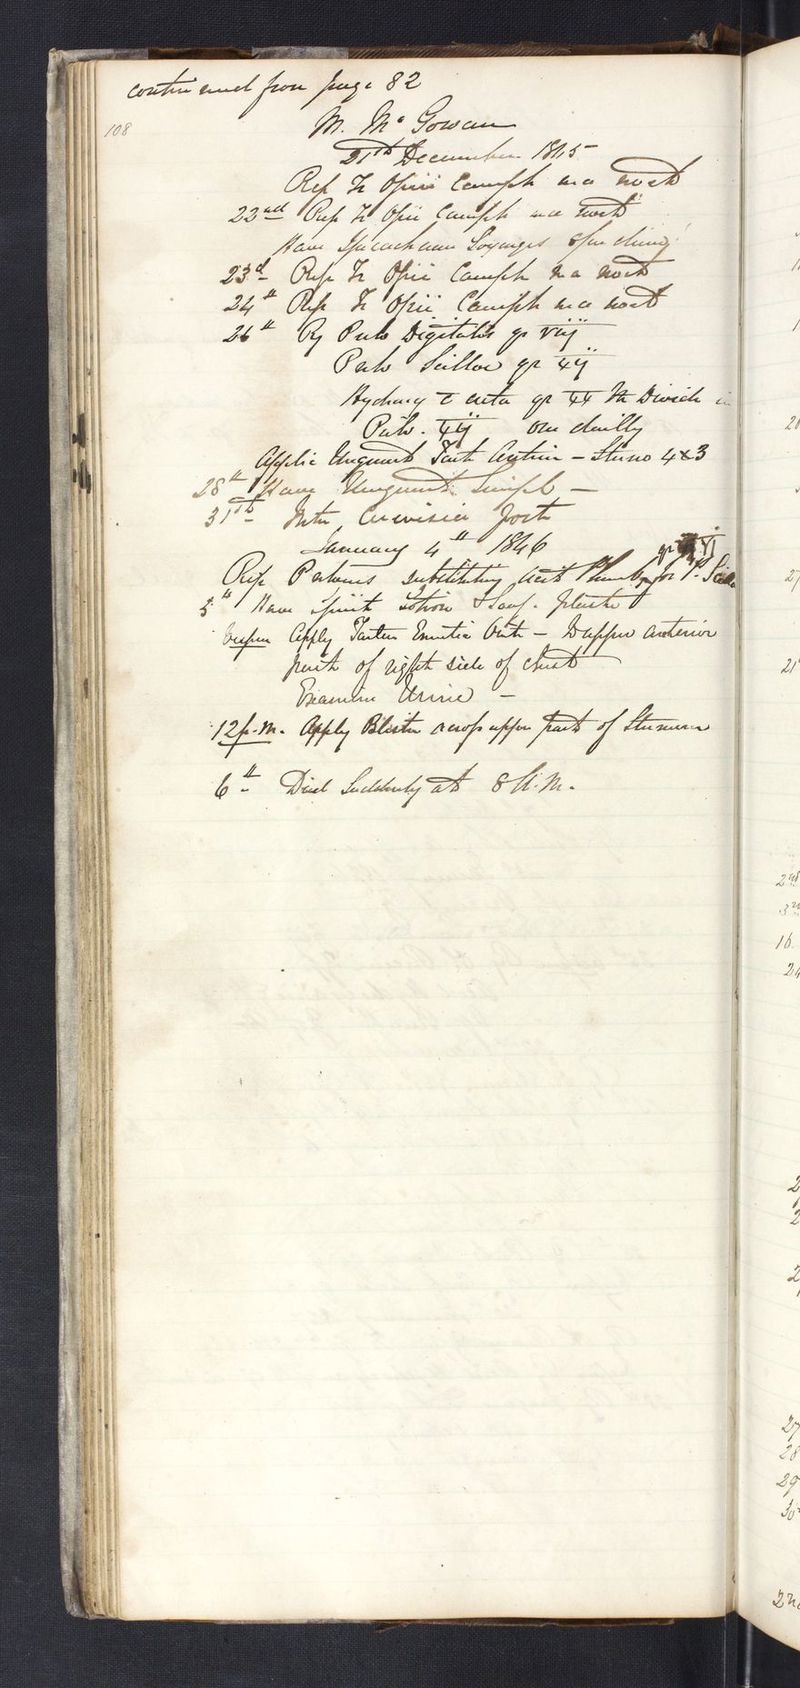 continued from page 82
108
M. McGowan
21st December 1845
Rep Tr Opii Camph h a noct
22nd Rep Tr Opii Camph h a noct
Have Ipecachuan Lozenges
23d Rep Tr Opii Camph h a noct
24th Rep Tr Opii Camph h a noct
26th Rx Pulv Digitalis gr viij
Pulv Scillae gr xij
Hydrarg c creta gr xx M Divide in
Pulv. xij one daily
Applic Unguent Tart Antim - Sterno
28th Have Unguent Simpl -
31st Mitte Cerevisia Porter
January 4th 1846 gr VI
Rep Pulveres substituting Acet Plumb for P. Scilla
5th Have Spirit Lotion & Soap plaster
Vesper Apply Tartar Emetic Oint - to upper anterior
part of right side of chest
Examine Urine -
12 p.m. Apply Blister across upper part of Sternum
6th Died Suddenly at 8 A.M.